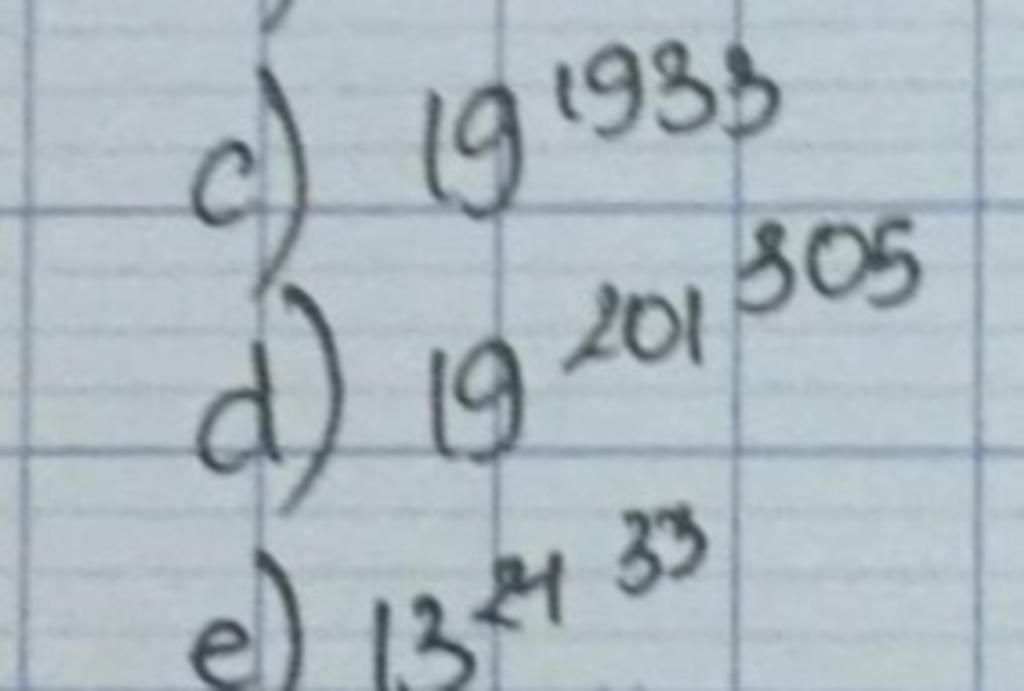 c) 19^1933
d) 19^201^305
e) 13^21^33